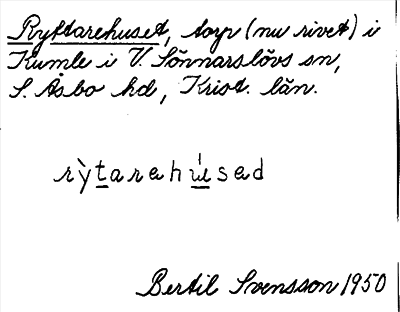 Ryttarehuset, torp (nu rivet) i
Kumle i V. Sönnarslövs sn,
S. Åsbo hd, Krist. län.
rỳtarehúsed
Bertil Svensson 1950